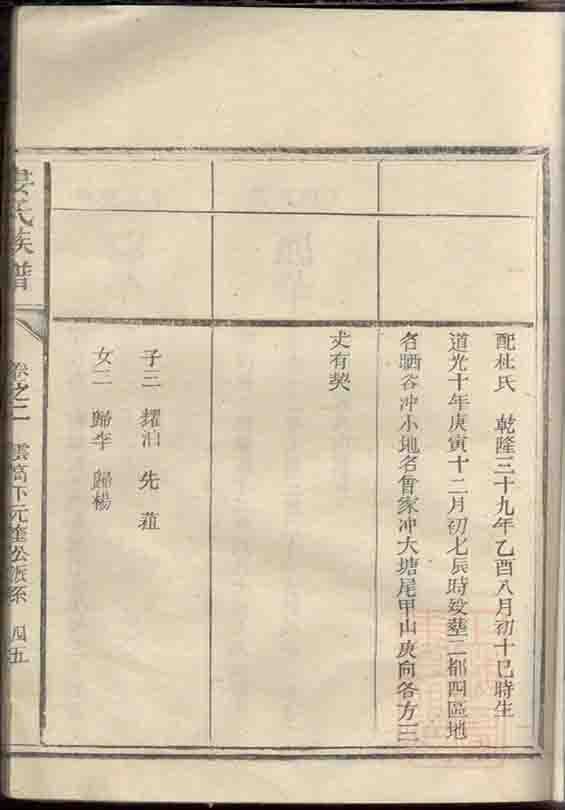 配杜氏 乾隆三十九年乙酉八月初十巳時生
道光十年庚寅十二月初七辰時歿塟二都四區地
名晒谷冲小地名曾家冲大塘尾甲山庚向各方三
丈有契
子三 耀泊 先 葅
女二 歸李 歸楊
氏族譜
卷之二 雲高下元奎公派系 四五